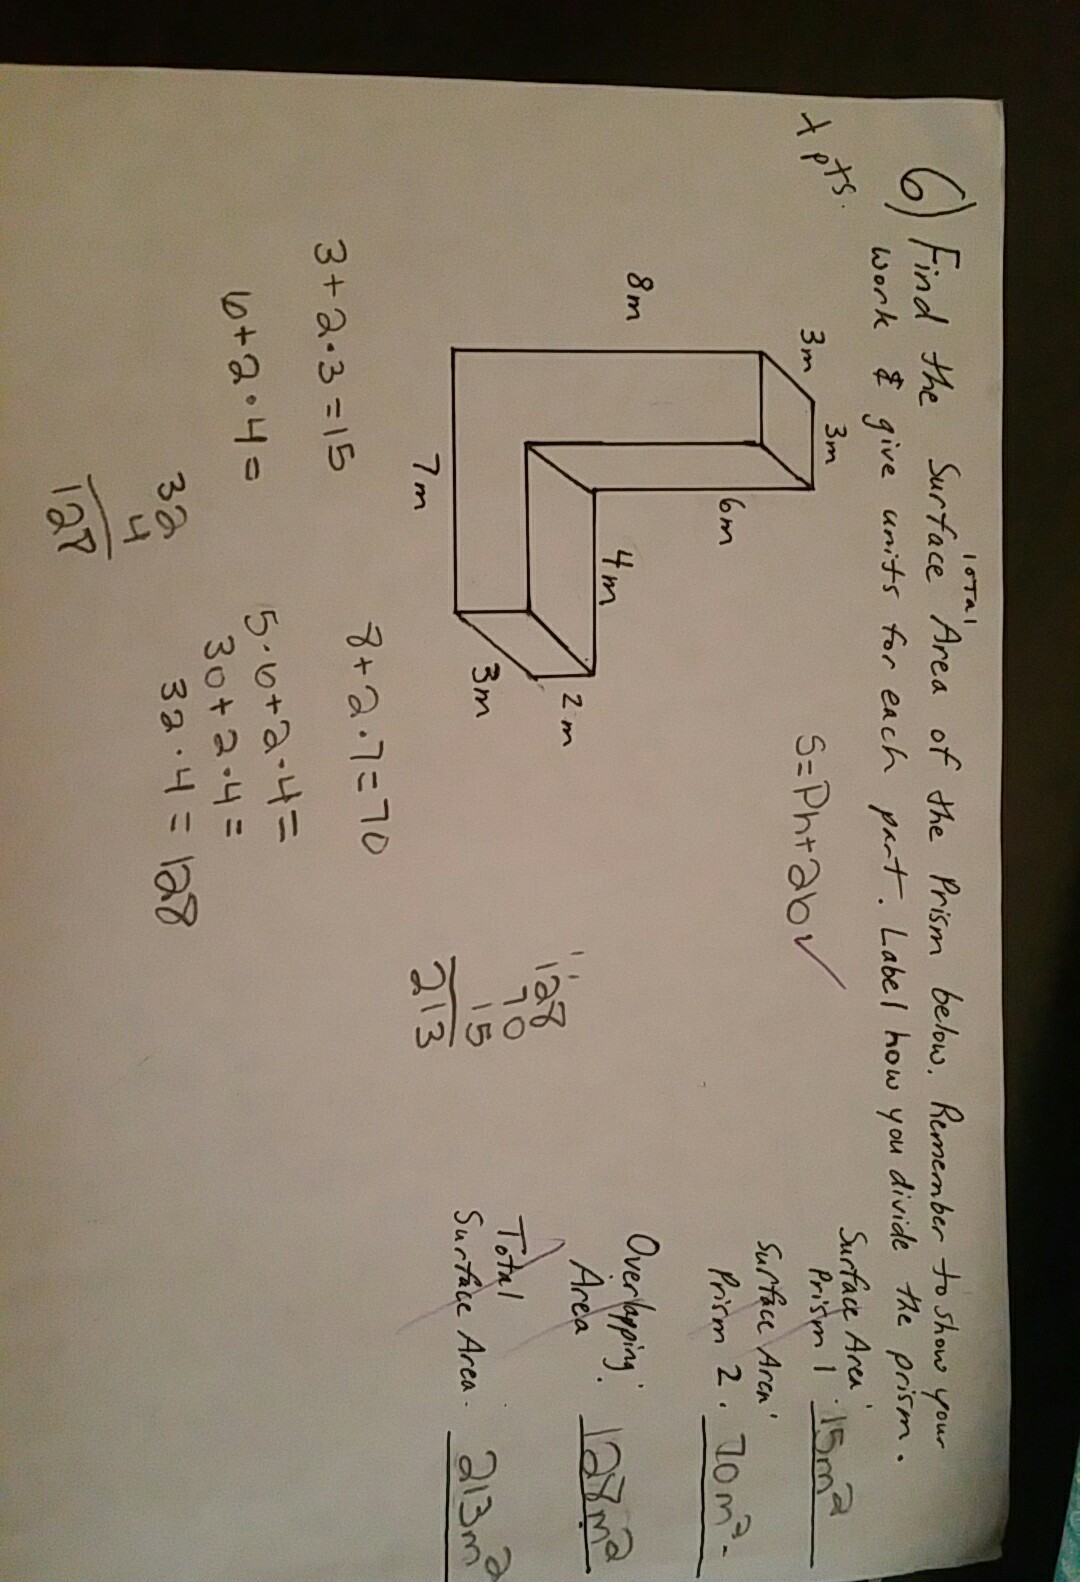 6) Find the Total Surface Area of the Prism below. Remember to show your
work & give units for each part. Label how you divide the prism.
pts.
S=Ph+2b✓
Surface Area
Prism 1. 15m²
Surface Area
Prism 2. 70m²
Overlapping
Area 128m²
Total
Surface Area. 213m²
3m
3m
8m
6m
4m
2m
7m
3m
128
70
15
213
3+2·3=15
8+2·7=70
6+2·4=
5·6+2·4=
30+2·4=
32·4=128
32
4
128